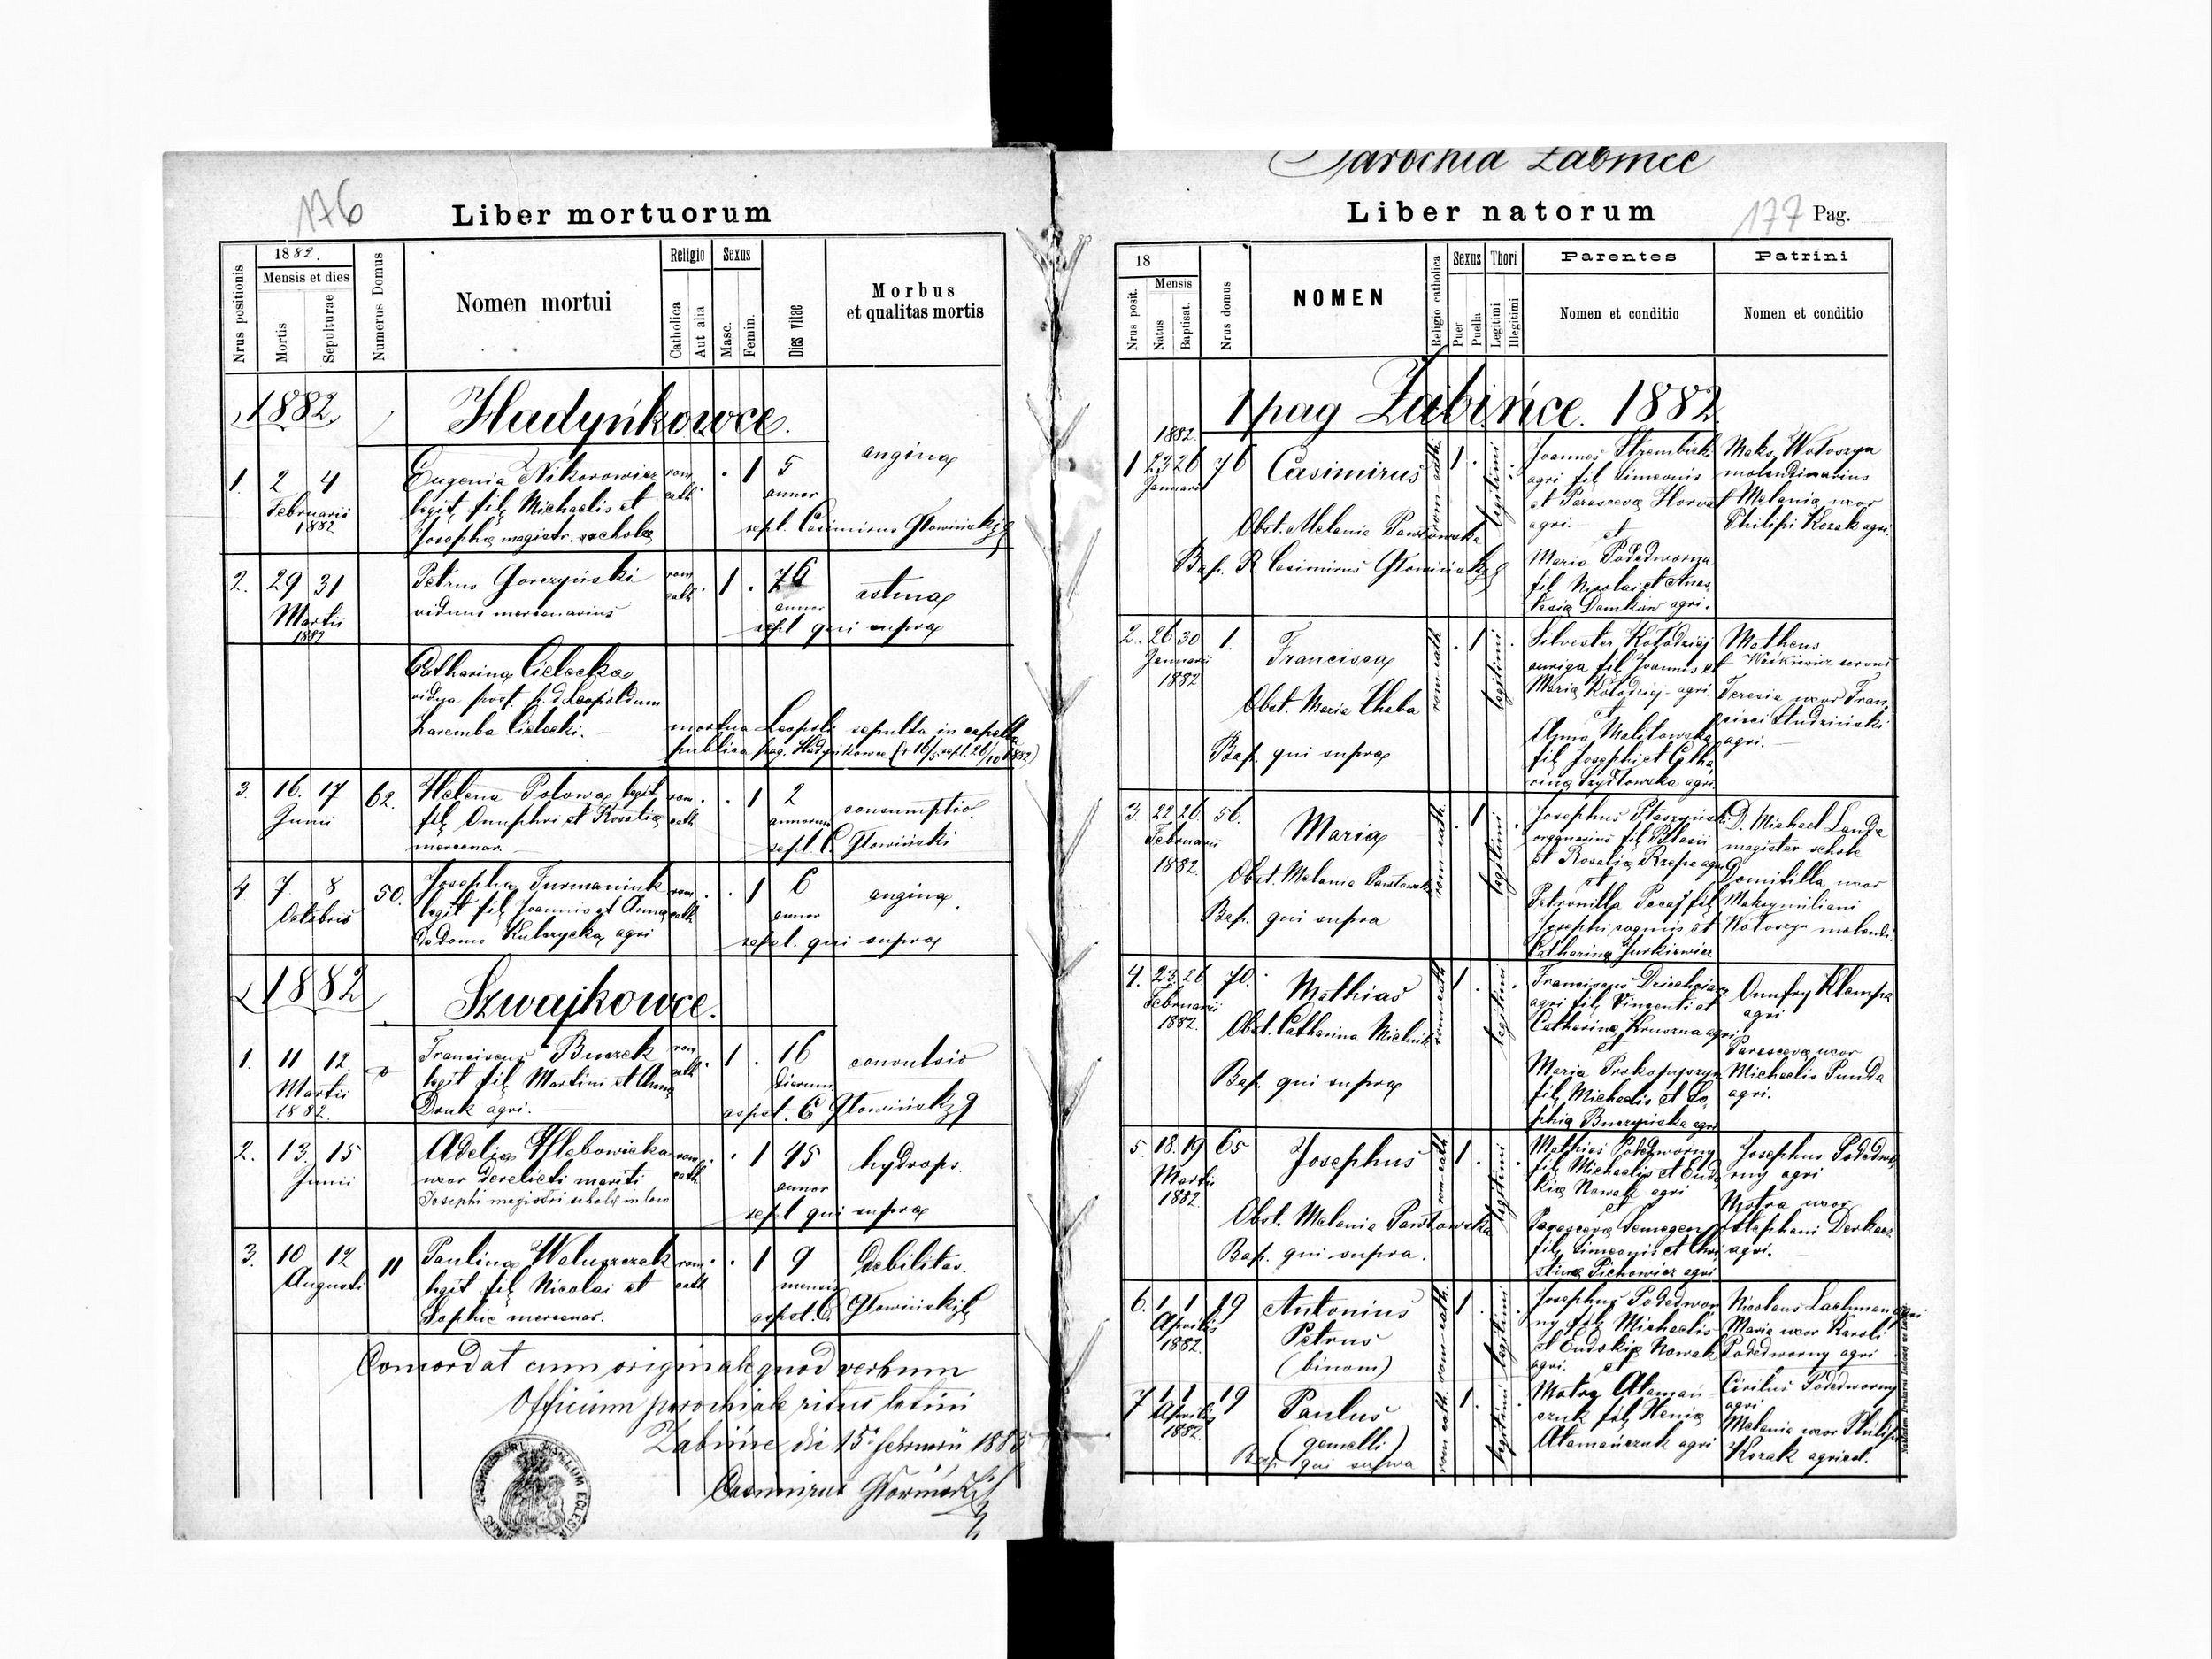 176
Liber mortuorum
Nrus positionis
1882.
Mensis et dies
Mortis
Sepulturae
Numerus Domus
Nomen mortui
Religio
Catholica
Aut alia
Sexus
Masc.
Femin.
Dies vitae
Morbus
et qualitas mortis
1882
Hadyńkowce.
1. 2 4 Eugenia Nikorowicz rom. 1 5 angina
Februarii legit. fil. Michaelis et cath. annor
1882 Josepha magistr. schola sepl. Casimirus Głowiński
2. 29 31 Petrus Gorczyński rom. 1 76 astma
Martii viduus mercenarius cath. annor
1882 sepl qui supra
Catharina Cielecka
vidua post. p. d. Leopoldum
Zaremba Cielecki. mortua Leopoli sepulta in capella
publica pag. Hadyńkowce
3. 16. 17 62. Helena Polowa legit rom. 1 2 consumptio
Junii fil. Onuphri et Rosalia cath annorum
mercenar. sepl C. Głowiński
4 7. 8 50. Josepha Furmaniuk rom. 1 6 angina
Octobris legit fil Joannis et Anna cath annor
de domo agri sepel. qui supra
1882
Szwajkowce.
1. 11 12. Franciscus Buczek rom 1 16 convulsio
Martii legit fil. Martini et Anna cath dierum
1882. Druk agri. C Głowiński
2. 13. 15 Adelia Hlebowicka rom. 1 45 hydrops.
Junii uxor derelicti mariti cath annor
Josephi magistri schola in loco sepl qui supra
3. 10 12 11 Paulina Waluszczak rom. 1 9 debilitas.
Augusti legit fil Nicolai et cath mensis
Sophie mercenar. C. Głowiński
Concordat cum originale quod verbum
Officium parochiale ritus latini
Żabińce die 15 februarii 188
Casimirus Głowiński
Parochia Żabińce
Liber natorum
177 Pag.
Nrus posit.
18
Mensis
Natus
Baptisat.
Nrus domus
NOMEN
Religio catholica
Sexus
Puer
Puella
Thori
Legitimi
Illegitimi
Parentes
Nomen et conditio
Patrini
Nomen et conditio
1 pag Żabińce. 1882
1882.
1 23 26 76 Casimirus rom-cath. 1 legitimi Joannes Strembicki Maks. Wołoszyn
Januarii agri fil Simeonis molendinarius
et Parasceva Horvat Melania uxor
agri. Philipi Kozak agri.
Obst. Melania Pawłowska et
Bap. R. Casimirus Głowiński Maria Podedworna
fil Nicolai et Anas-
tasia Demkow agri.
2. 26 30 1. Francisca rom-cath 1 legitimi Silvester Kołodziej Matheus
Januarii auriga fil Joannis et servus
1882. Maria Kołodziej agri. Teresia uxor Fran-
Obst. Maria Chaba et cisci Studziński
Anna Malitowska agri.
Bap. qui supra fil Josephi et Catha-
rina Szydłowska agri.
3. 22 26. 56. Maria rom-cath. 1 legitimi Josephus Ptaszyński D. Michael Lunda
Februarii organarius fil Blasii magister schole
1882. et Rosalia Rzepa agri Domitilla uxor
Obst. Melania Pawłowska et Maksymiliani
Petronilla fil Wołoszyn molendi.
Bap. qui supra Josephi et
Catharina Jurkiewicz
4. 23 26 70. Mathias rom-cath 1 legitimi Franciscus Onufry Klempa
Februarii agri fil. Vincenti et agri
1882. Obst. Catharina Mielnik Catharina agri
et Parasceva uxor
Maria Prokopyszyn Michaelis Punda
Bap. qui supra fil Michaelis et So- agri.
phia Buczyńska agri
5. 18. 19 65 Josephus rom-cath 1 legitimi Mathias Podedworny Josephus Podedwor-
Martii fil Michaelis et Eudo- ny agri
1882. kia Nowak agri Motra uxor
Obst. Melania Pawłowska et Stephani Derkacz
Parasceva agri.
Bap. qui supra. fil Simeonis et Chri-
stina Pichowicz agri
6. 1 1 19 Antonius rom-cath. 1 legitimi Josephus Podedwor- Nicolaus Lachman agri
Aprilis Petrus ny fil Michaelis Maria uxor Karoli
1882 (binom) et Eudokia Nowak Podedworny agri
agri. et
7 1 1 19 Paulus rom cath. 1 legitimi Motra Ataman- Cirilus Podedworny
Aprilis (gemelli) czuk fil Xenia agri
1882. Bap. qui supra Atamańczuk agri Melania uxor Philipi
Kozak agricol.